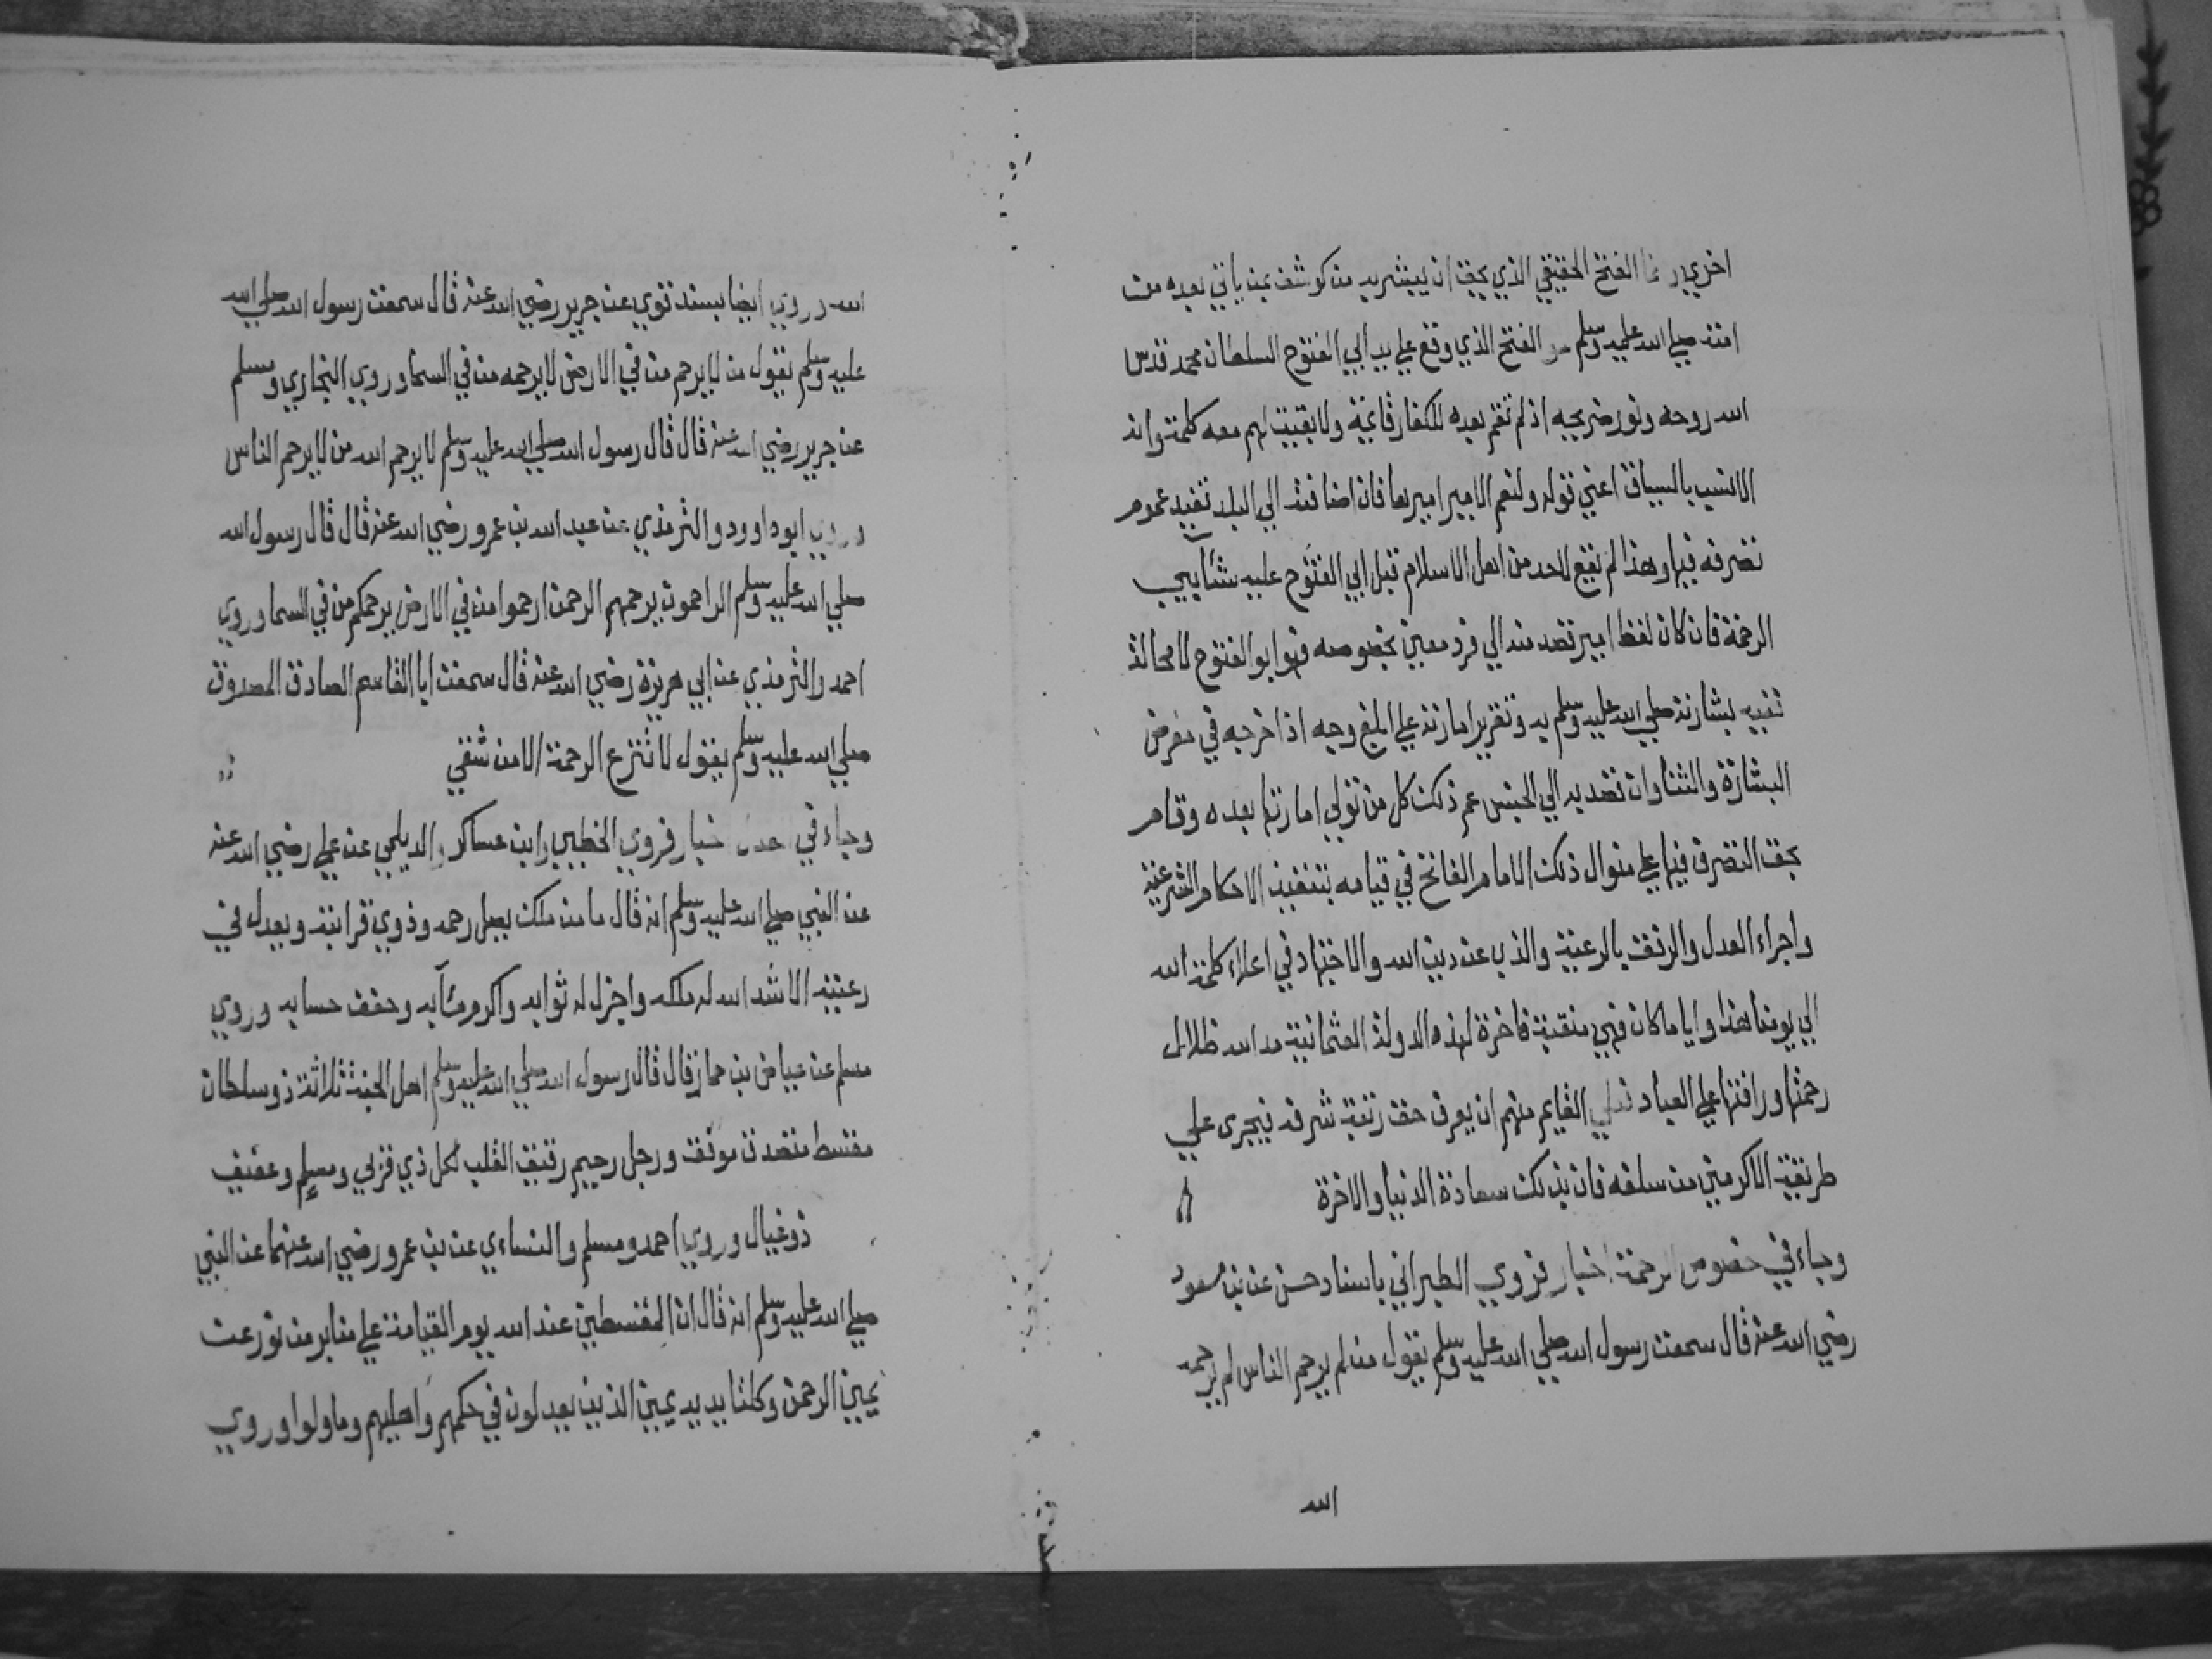 اخري وانما الفتح الحقيقي الذي يحق ان يبشر به من كوشف بمن ياتي بعده من
امته صلي الله عليه وسلم هو الفتح الذي وقع علي يد ابي الفتوح السلطان محمد قدس
الله روحه ونور ضريحه اذ لم تقم بعده للكفار قائمة ولا بقيت لهم معه كلمة وانه
الانسب بالسياق اعني قوله ولنعم الامير اميرها فان اضافته الي البلد تفيد عموم
تصرفه فيها وهذا لم يقع لاحد من اهل الاسلام قبل ابي الفتوح عليه شئابيب
الرحمة فان كان لفظ امير قصد منه الي فرد معين بخصوصه فهو ابو الفتوح لا محالة
ففيه بشارته صلي الله عليه وسلم به وتقرير امارته علي ابلغ وجه اذ اخرجه في معرض
البشارة والثناوان قصد به الي الجنس عم ذلك كل من تولي امارتها بعده وقام
بحق التصرف فيها علي منوال ذلك الامام الفاتح في قيامه بتنفيذ الاحكام الشرعية
واجراء العدل والرفق بالرعية والذب عن دين الله والاجتهاد في اعلاء كلمة الله
الي يومنا هذا وايا ما كان فهي منقبة فاخرة لهذه الدولة العثمانية مد الله ظلال
رحمتها ورافتها علي العباد فعلي القايم منهم ان يعرف حق رتبة شرفه فيجري علي
طريقة الاكرمين من سلفه فان بذلك سعادة الدنيا والاخرة
وجاء في خصوص الرحمة اخبار فروي الطبراني باسناد حسن عن بن مسعود
رضي الله عنه قال سمعت رسول الله صلي الله عليه وسلم يقول من لم يرحم الناس لم يرحمه
الله
الله وروي ايضا بسند قوي عن جرير رضي الله عنه قال سمعت رسول الله صلي الله
عليه وسلم يقول من لا يرحم من في الارض لا يرحمه من في السما وروي البخاري ومسلم
عن جرير رضي الله عنه قال قال رسول الله صلي الله عليه وسلم لا يرحم الله من لا يرحم الناس
وروي ابو داوود والترمذي عن عبد الله بن عمرو رضي الله عنه قال قال رسول الله
صلي الله عليه وسلم الراحمون يرحمهم الرحمن ارحموا من في الارض يرحمكم من في السما وروي
احمد والترمذي عن ابي هريرة رضي الله عنه قال سمعت ابا القاسم الصادق المصدوق
صلي الله عليه وسلم يقول لا تنزع الرحمة الا من شقي
وجاء في العدل اخبار فروي الخطيب وابن عساكر والديلمي عن علي رضي الله عنه
عن النبي صلي الله عليه وسلم انه قال ما من ملك يصل رحمه وذوي قرابته ويعدل في
رعيته الا شد الله له ملكه واجزل له ثوابه واكرم مئآبه وخفف حسابه وروي
مسلم عن عياض بن حمار قال قال رسول الله صلي الله عليه وسلم اهل الجنة ثلاثة ذو سلطان
مقسط متصدق موفق ورجل رحيم رقيق القلب لكل ذي قربي ومسلم وعفيف
ذو عيال وروي احمد ومسلم والنساءي عن بن عمرو رضي الله عنهما عن النبي
صلي الله عليه وسلم انه قال ان المقسطين عند الله يوم القيامة علي منابر من نور عن
يمين الرحمن وكلتا يديه يمين الذين يعدلون في حكمهم واهليهم وما ولوا وروي